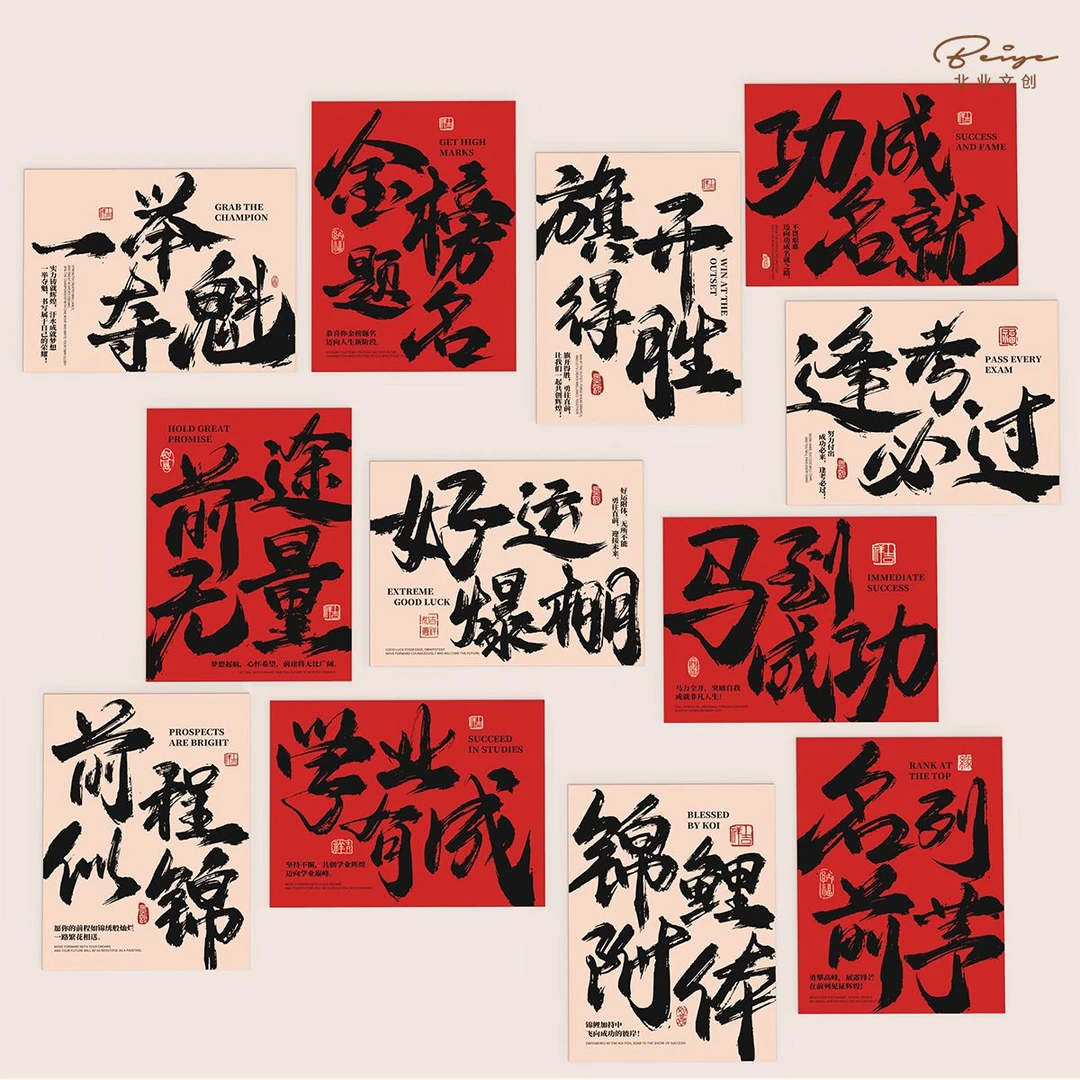 Beiye
北业文创
一举
夺魁
GRAB THE
CHAMPION
实力铸就辉煌，汗水成就梦想
一举夺魁，书写属于自己的荣耀！
金榜
题名
GET HIGH
MARKS
恭喜你金榜题名
迈向人生新阶段。
旗开
得胜
WIN AT THE
OUTSET
旗开得胜，勇往直前，
让我们一起共创辉煌！
功成
名就
SUCCESS
AND FAME
不畏艰难
迈向功成名就之路。
逢考
必过
PASS EVERY
EXAM
努力付出
成功必来，逢考必过！
HOLD GREAT
PROMISE
前途
无量
梦想起航，心怀希望，前途将无比广阔。
好运
爆棚
EXTREME
GOOD LUCK
好运附体，无所不能
勇往直前，迎接未来。
GOOD LUCK POSSESSED, OMNIPOTENT
MOVE FORWARD COURAGEOUSLY AND WELCOME THE FUTURE
马到
成功
IMMEDIATE
SUCCESS
马力全开，突破自我
成就非凡人生！
前程
似锦
PROSPECTS
ARE BRIGHT
愿你的前程如锦绣般灿烂
一路繁花相送。
MOVE FORWARD WITH YOUR DREAMS
AND YOUR FUTURE WILL BE AS BEAUTIFUL AS A PAINTING.
学业
有成
SUCCEED
IN STUDIES
坚持不懈，共创学业辉煌
迈向学业巅峰。
锦鲤
附体
BLESSED
BY KOI
锦鲤加持中
飞向成功的彼岸！
EMPOWERED BY THE KOI FISH, SOAR TO THE SHORE OF SUCCESS
名列
前茅
RANK AT
THE TOP
勇攀高峰，展露锋芒
在前列见证辉煌！